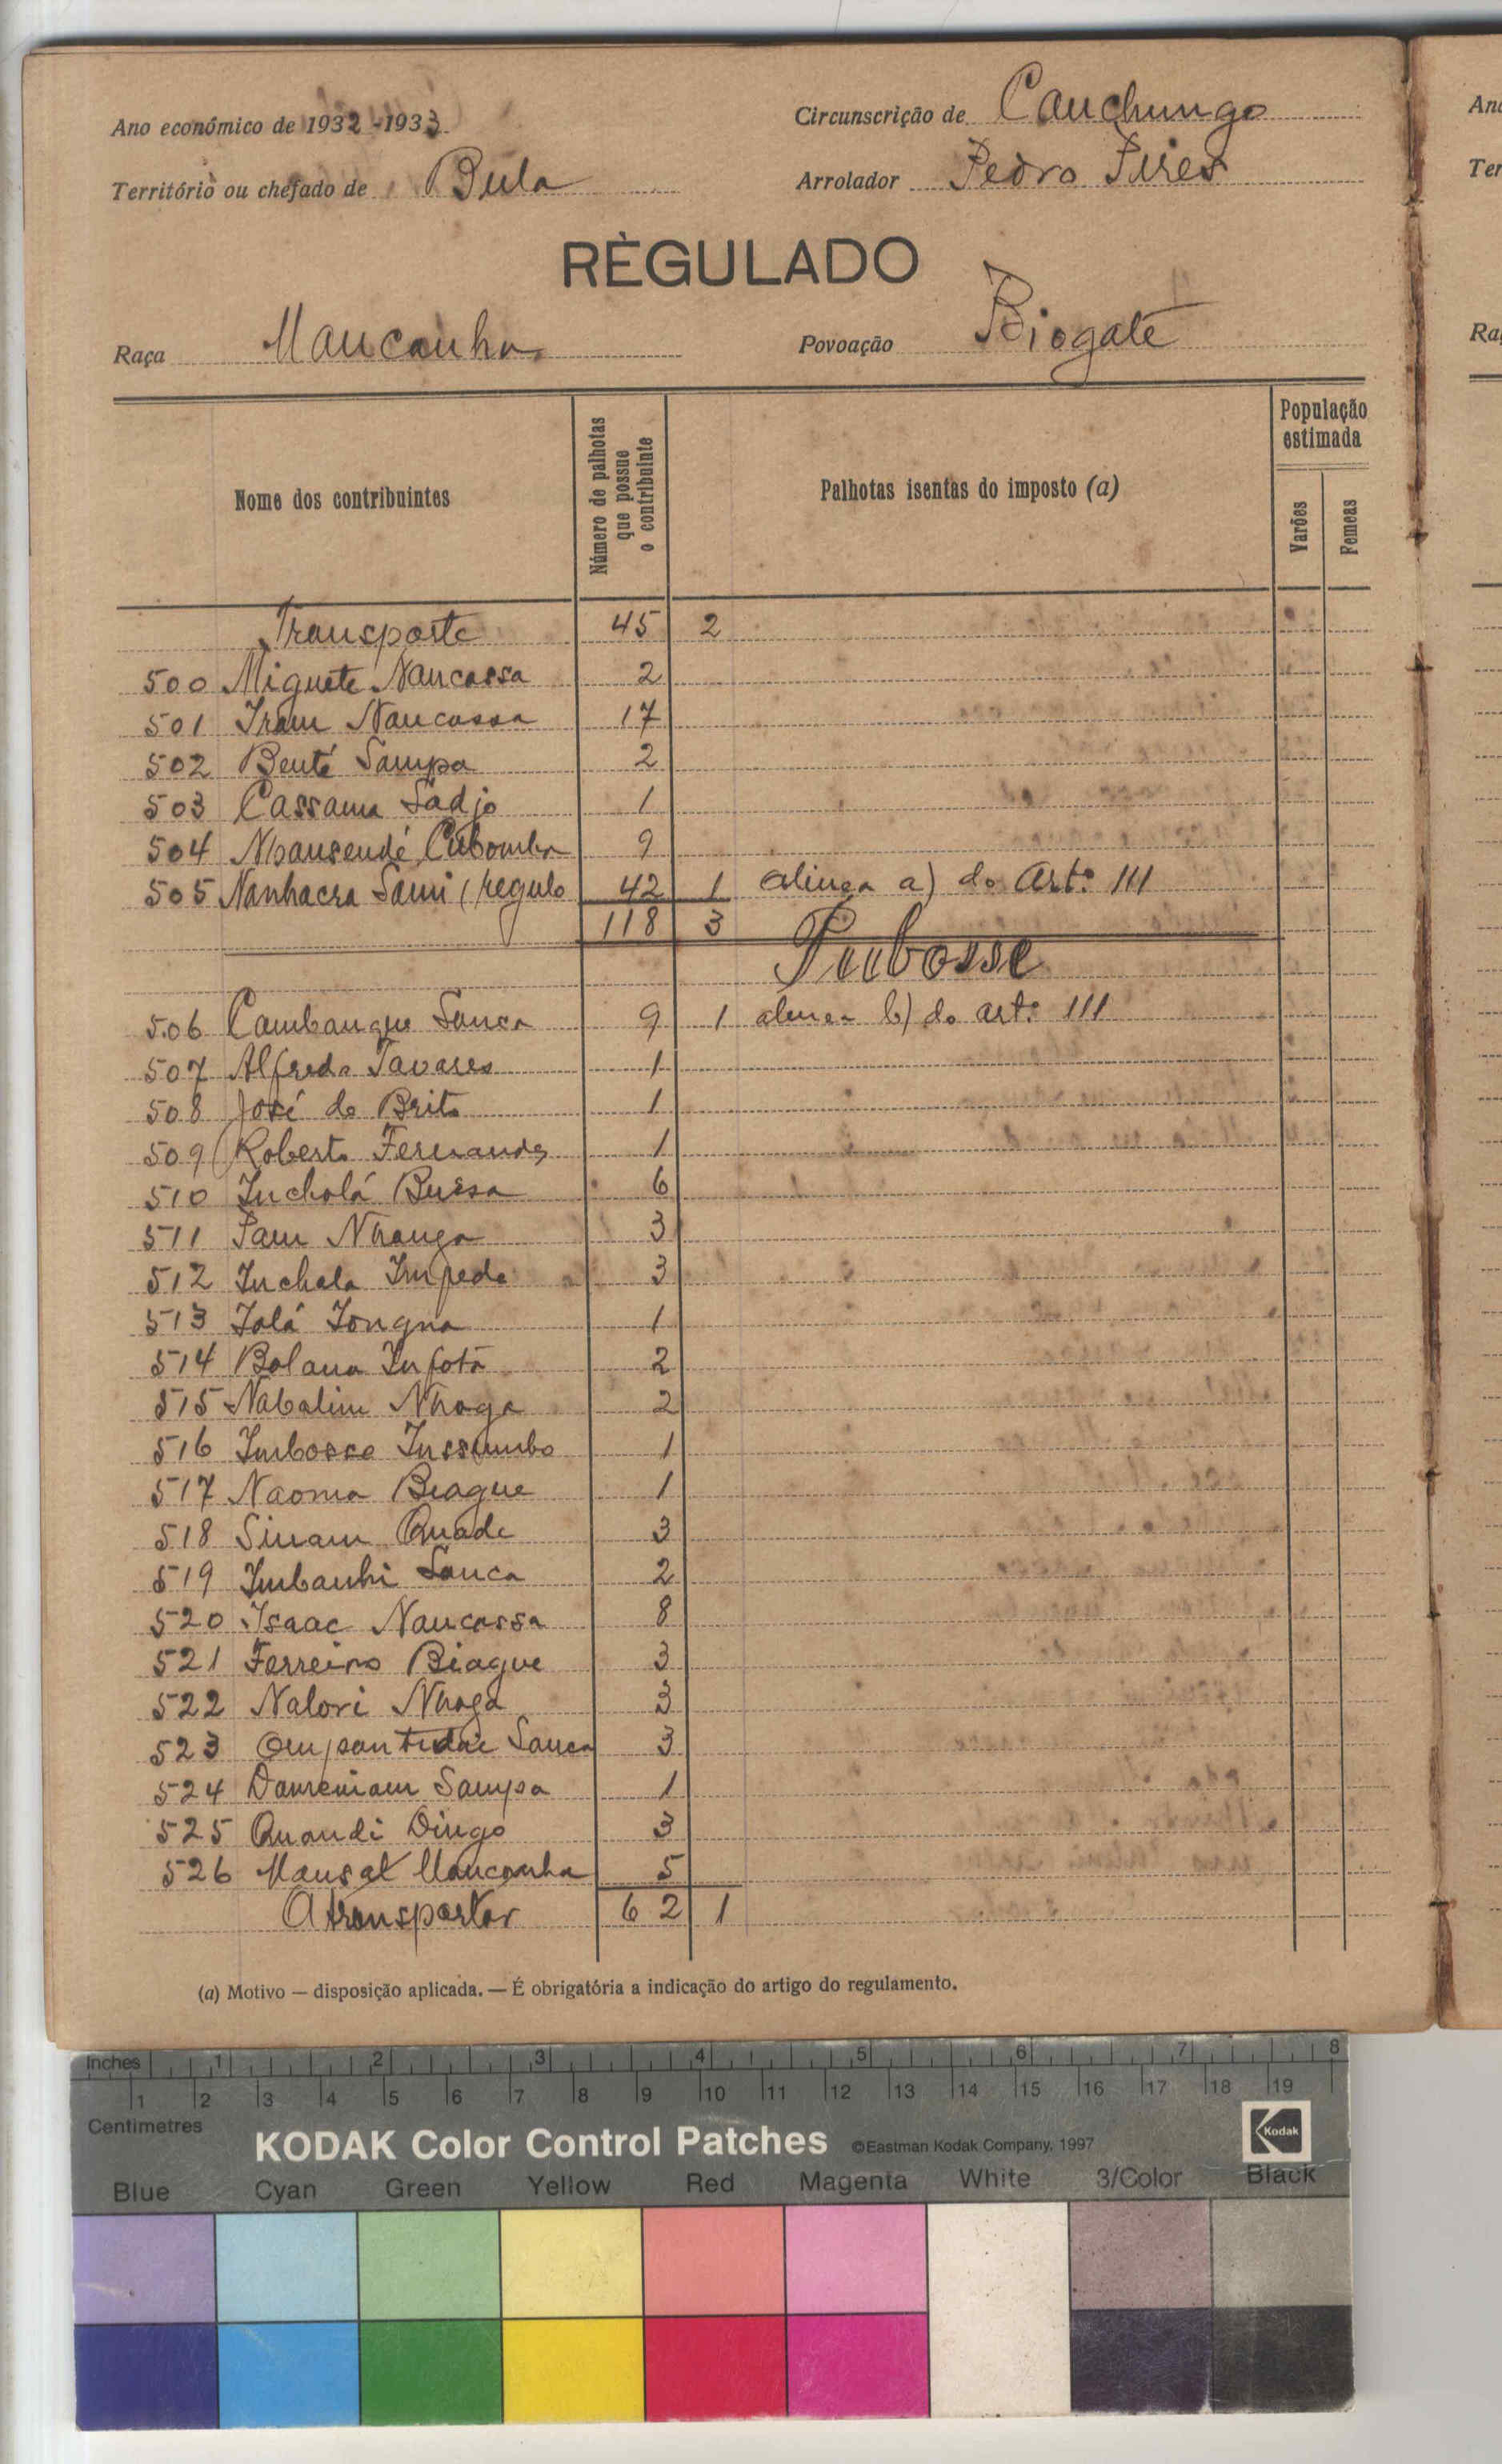 Ano económico de 1932-1933
Circunscrição de Cauchungo
Território ou chefado de Bula
Arrolador Pedro Pires
RÈGULADO
Raça Mancanha
Povoação Biogate
Nome dos contribuintes
Número de palhotas que possue o contribuinte
Palhotas isentas do imposto (a)
População estimada
Varões
Femeas
Transporte 45 2
500 Miguete Nancassa 2
501 Iram Nancassa 17
502 Benté Sampa 2
503 Cassama Sadjo 1
504 9
505 Nanhacra Sami (regulo 42 1 alinea a) do Artº 111
118 3
Imbosse
506 Cambanque Sanca 9 1 alinea b) do artº 111
507 Alfredo Tavares 1
508 José de Brito 1
509 Roberto Fernandes 1
510 Incholá Bussa 6
511 Nhanga 3
512 Inchala Impeda 3
513 1
514 Bolana Infotá 2
515 Nabalim Nhaga 2
516 Imbosse Inssumbo 1
517 Naoma Biague 1
518 Sinam Quade 3
519 Imbanhi Sanca 2
520 Isaac Nancassa 8
521 Ferreiro Biague 3
522 Nalori Nhaga 3
523 Sanca 3
524 Sampa 1
525 Quandi Dingo 3
526 Mansal Mancanha 5
A transportar 62 1
(a) Motivo — disposição aplicada. — É obrigatória a indicação do artigo do regulamento.
Inches 1 2 3 4 5 6 7 8
1 2 3 4 5 6 7 8 9 10 11 12 13 14 15 16 17 18 19
Centimetres
KODAK Color Control Patches ©Eastman Kodak Company, 1997 Kodak
Blue Cyan Green Yellow Red Magenta White 3/Color Black